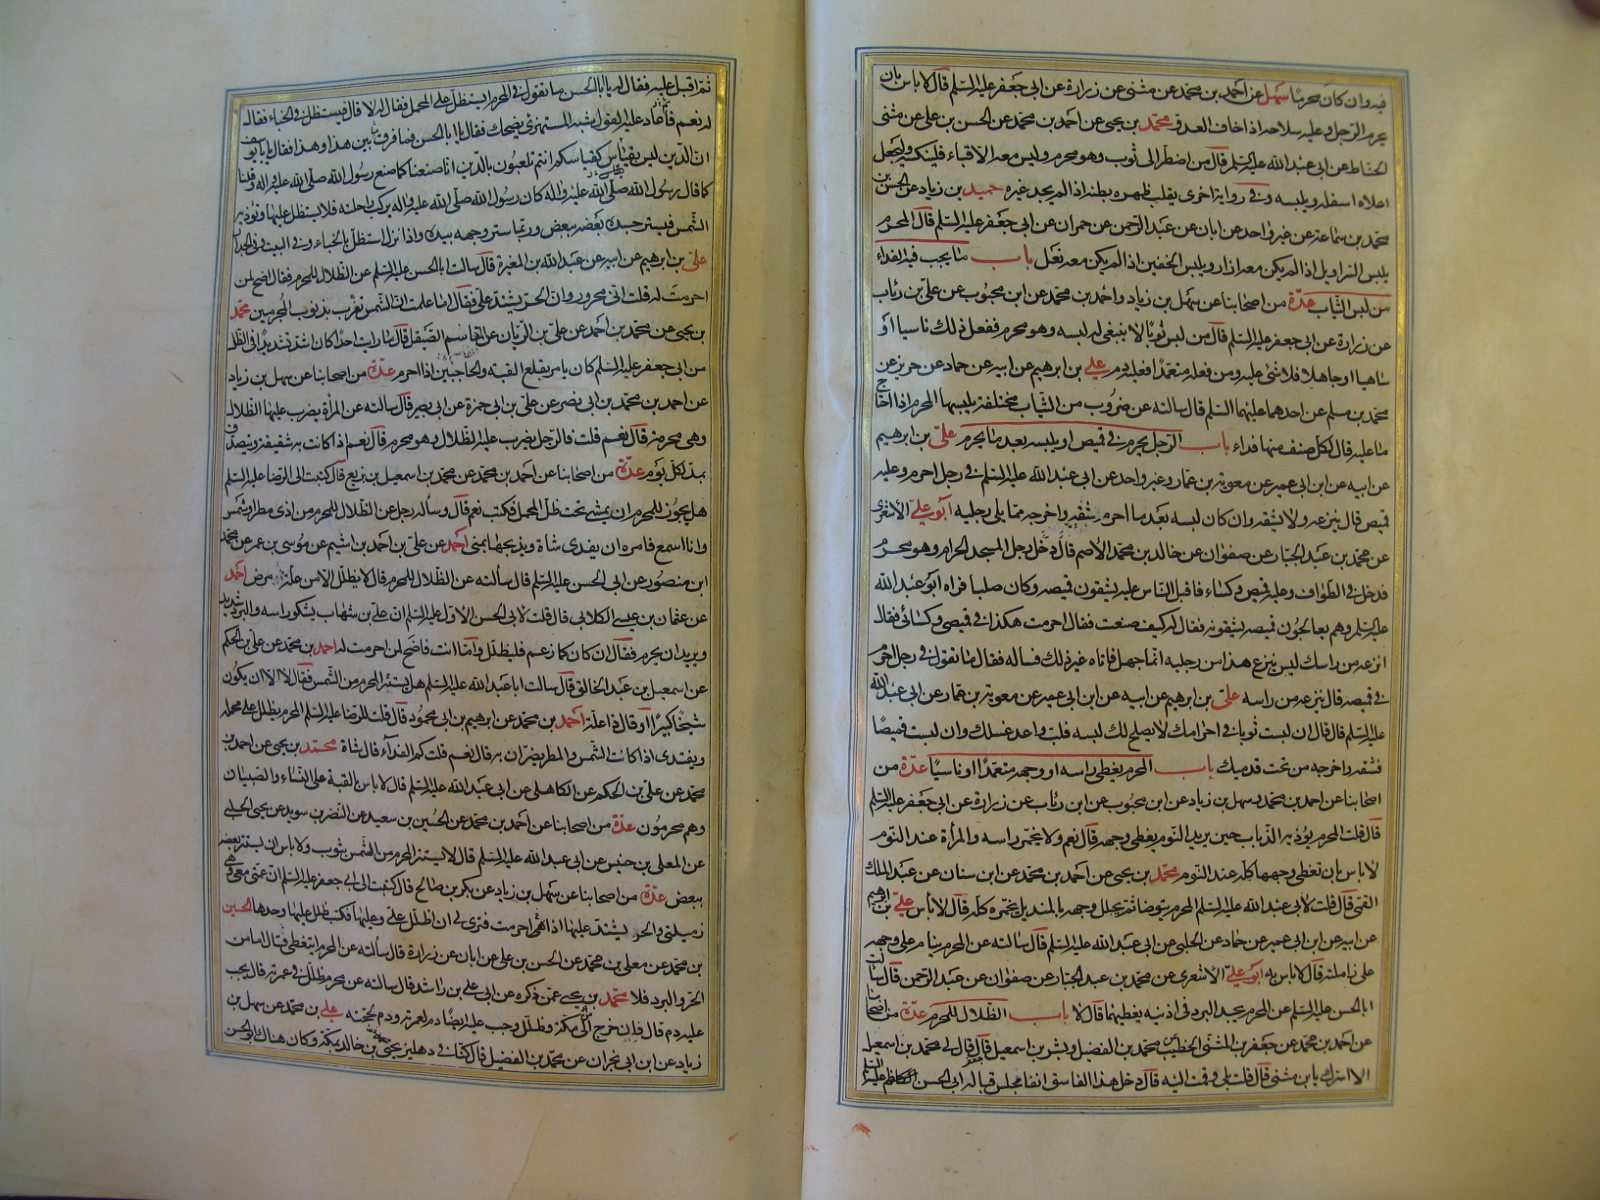 فيه وان كان محرما سهل عن احمد بن محمد عن مثنى عن زرارة عن ابى جعفر عليه السلم قال لا باس بان
يحرم الرجل وعليه سلاحه اذا خاف العدو محمد بن يحيى عن احمد بن محمد عن الحسن بن على عن مثنى
الحناط عن ابى عبد الله عليه السلم قال من اضطر الى ثوب وهو محرم وليس معه الا قباء فلينكسه وليجعل
اعلاه اسفله ويلبسه وفى رواية اخرى يقلب ظهره بطنه اذا لم يجد غيره حميد بن زياد عن الحسن بن
محمد بن سماعة عن غير واحد عن ابان عن عبد الرحمن عن حمران عن ابى جعفر عليه السلم قال المحرم
يلبس السراويل اذا لم يكن معه ازار ويلبس الخفين اذا لم يكن معه نعل باب ما يجب فيه الفداء
من لبس الثياب عدة من اصحابنا عن سهل بن زياد واحمد بن محمد عن ابن محبوب عن على بن رئاب
عن زرارة عن ابى جعفر عليه السلم قال من لبس ثوبا لا ينبغى له لبسه وهو محرم ففعل ذلك ناسيا او
ساهيا او جاهلا فلا شئ عليه ومن فعله متعمدا فعليه دم على بن ابرهيم عن ابيه عن حماد عن حريز عن
محمد بن مسلم عن احدهما عليهما السلم قال سالته عن ضروب من الثياب مختلفة يلبسها المحرم اذا احتاج
ما عليه قال لكل صنف منها فداء باب الرجل يحرم فى قميص او يلبسه بعد ما يحرم على بن ابرهيم
عن ابيه عن ابن ابى عمير عن معوية بن عمار وغير واحد عن ابى عبد الله عليه السلم فى رجل احرم وعليه
قميص قال ينزعه ولا يشقه وان كان لبسه بعد ما احرم شقه واخرجه مما يلى رجليه ابو على الاشعرى
عن محمد بن عبد الجبار عن صفوان عن خالد بن محمد الاصم قال دخل رجل المسجد الحرام وهو محرم
فدخل فى الطواف وعليه قميص وكساء فاقبل الناس عليه يشقون قميصه وكان صلبا فراه ابو عبد الله
عليه السلم وهم يعالجون قميصه يشقونه فقال له كيف صنعت فقال احرمت هكذا فى قميصى وكسائى فقال
انزعه من راسك ليس ينزع هذا من رجليه انما جهل فاتاه غير ذلك فساله فقال ما تقول فى رجل احرم
فى قميصه قال ينزعه من راسه على بن ابرهيم عن ابيه عن ابن ابى عمير عن معوية بن عمار عن ابى عبد الله
عليه السلم قال قال ان لبست ثوبا فى احرامك لا يصلح لك لبسه فلب واعد غسلك وان لبست قميصا
فشقه واخرجه من تحت قدميك باب المحرم يغطى راسه او وجهه متعمدا او ناسيا عدة من
اصحابنا عن احمد بن محمد وسهل بن زياد عن ابن محبوب عن ابن رئاب عن زرارة عن ابى جعفر عليه السلم
قال قلت المحرم يؤذيه الذباب حين يريد النوم يغطى وجهه قال نعم ولا يخمر راسه والمرأة عند النوم
لا باس بان تغطى وجهها كله عند النوم محمد بن يحيى عن احمد بن محمد عن ابن سنان عن عبد الملك
القمى قال قلت لابى عبد الله عليه السلم المحرم يتوضا ثم يجلل وجهه بالمنديل يخمره كله قال لا بأس على بن ابرهيم
عن ابيه عن ابن ابى عمير عن حماد عن الحلبى عن ابى عبد الله عليه السلم قال سالته عن المحرم ينام على وجهه
على زاملته قال لا باس به ابو على الاشعرى عن محمد بن عبد الجبار عن صفوان عن عبد الرحمن قال سالت
ابا الحسن عليه السلم عن المحرم يجد البرد فى اذنيه يغطيهما قال لا باب الظلال للمحرم عدة من اصحابنا
عن احمد بن محمد عن جعفر بن المثنى الخطيب عن محمد بن الفضيل وبشر بن اسمعيل قال قال لى محمد بن اسمعيل
الا اسرك يا بن مثنى قال قلت بلى وقمت اليه قال دخل هذا الفاسق انفا فجلس قبالة ابى الحسن عليه السلم
ثم اقبل عليه فقال له يا ابا الحسن ما تقول فى المحرم ايستظل على المحمل فقال له لا قال فيستظل فى الخباء فقال
له نعم فاعاد عليه القول شبه المستهزئ يضحك فقال يا ابا الحسن فما فرق بين هذا وهذا فقال يا با يوسف
ان الدين ليس بقياس كقياسكم انتم تلعبون بالدين انا صنعنا كما صنع رسول الله صلى الله عليه واله وقلنا
كما قال رسول الله صلى الله عليه واله كان رسول الله صلى الله عليه واله يركب راحلته فلا يستظل عليها وتؤذيه
الشمس فيستر جسده بعضه ببعض وربما ستر وجهه بيده واذا نزل استظل بالخباء وفى البيت وفى الجدار
على بن ابرهيم عن ابيه عن عبد الله بن المغيرة قال سالت ابا الحسن عليه السلم عن الظلال للمحرم فقال اضح لمن
احرمت له قلت انى محرور وان الحر يشتد على فقال اما علمت ان الشمس تغرب بذنوب المجرمين محمد
بن يحيى عن محمد بن احمد عن على بن الريان عن القاسم الصيقل قال ما رايت احدا كان اشد تشديدا فى الظل
من ابى جعفر عليه السلم كان يامر بقلع القبة والحاجبين اذا احرم عدة من اصحابنا عن سهل بن زياد
عن احمد بن محمد بن ابى نصر عن على بن ابى حمزة عن ابى بصير قال سالته عن المرأة يضرب عليها الظلال
وهى محرمة قال نعم قلت فالرجل يضرب عليه الظلال وهو محرم قال نعم اذا كانت به شقيقة ويتصدق
بمد لكل يوم عدة من اصحابنا عن احمد بن محمد عن محمد بن اسمعيل بن بزيع قال كتبت الى الرضا عليه السلم
هل يجوز للمحرم ان يمشى تحت ظل المحمل فكتب نعم قال وساله رجل عن الظلال للمحرم من اذى مطر او شمس
وانا اسمع فامره ان يفدى شاة ويذبحها بمنى احمد عن على بن احمد بن اشيم عن موسى بن عمر عن محمد
ابن منصور عن ابى الحسن عليه السلم قال سألته عن الظلال للمحرم قال لا يظلل الا من علة مرض احمد
عن عثمان بن عيسى الكلابى قال قلت لابى الحسن الاول عليه السلم ان على بن شهاب يشكو راسه والبرد شديد
ويريد ان يحرم فقال ان كان كما زعم فليظلل واما انت فاضح لمن احرمت له احمد بن محمد عن على بن الحكم
عن اسمعيل بن عبد الخالق قال سالت ابا عبد الله عليه السلم هل يستتر المحرم من الشمس فقال لا الا ان يكون
شيخا كبيرا او قال ذا علة احمد بن محمد عن ابرهيم بن ابى محمود قال قلت للرضا عليه السلم المحرم يظلل على محمله
ويفتدى اذا كانت الشمس والمطر يضران به قال نعم قلت كم الفداء قال شاة محمد بن يحيى عن احمد بن
محمد عن على بن الحكم عن الكاهلى عن ابى عبد الله عليه السلم قال لا باس بالقبة على النساء والصبيان
وهم محرمون عدة من اصحابنا عن احمد بن محمد عن الحسين بن سعيد عن النضر بن سويد عن يحيى الحلبى
عن المعلى بن خنيس عن ابى عبد الله عليه السلم قال لا يستتر المحرم من الشمس بثوب ولا باس ان يستتر بعضه
ببعض عدة من اصحابنا عن سهل بن زياد عن بكر بن صالح قال كتبت الى ابى جعفر عليه السلم ان عمتى معى وهى
زميلتى والحر يشتد عليها اذا احرمت فترى لى ان اظلل على وعليها فكتب ظلل عليها وحدها الحسين
بن محمد عن معلى بن محمد عن الحسن بن على عن ابان عن زرارة قال سألته عن المحرم ايتغطى فقال اما من
الحر والبرد فلا محمد بن يحيى عمن ذكره عن ابى على بن راشد قال سالته عن محرم ظلل فى عمرته قال يجب
عليه دم قال فان خرج الى مكة وظلل وجب عليه ايضا دم لعمرته ودم لحجته على بن محمد عن سهل بن
زياد عن ابن ابى نجران عن محمد بن الفضيل قال كنا فى دهليز يحيى بن خالد بمكة وكان هناك ابو الحسن